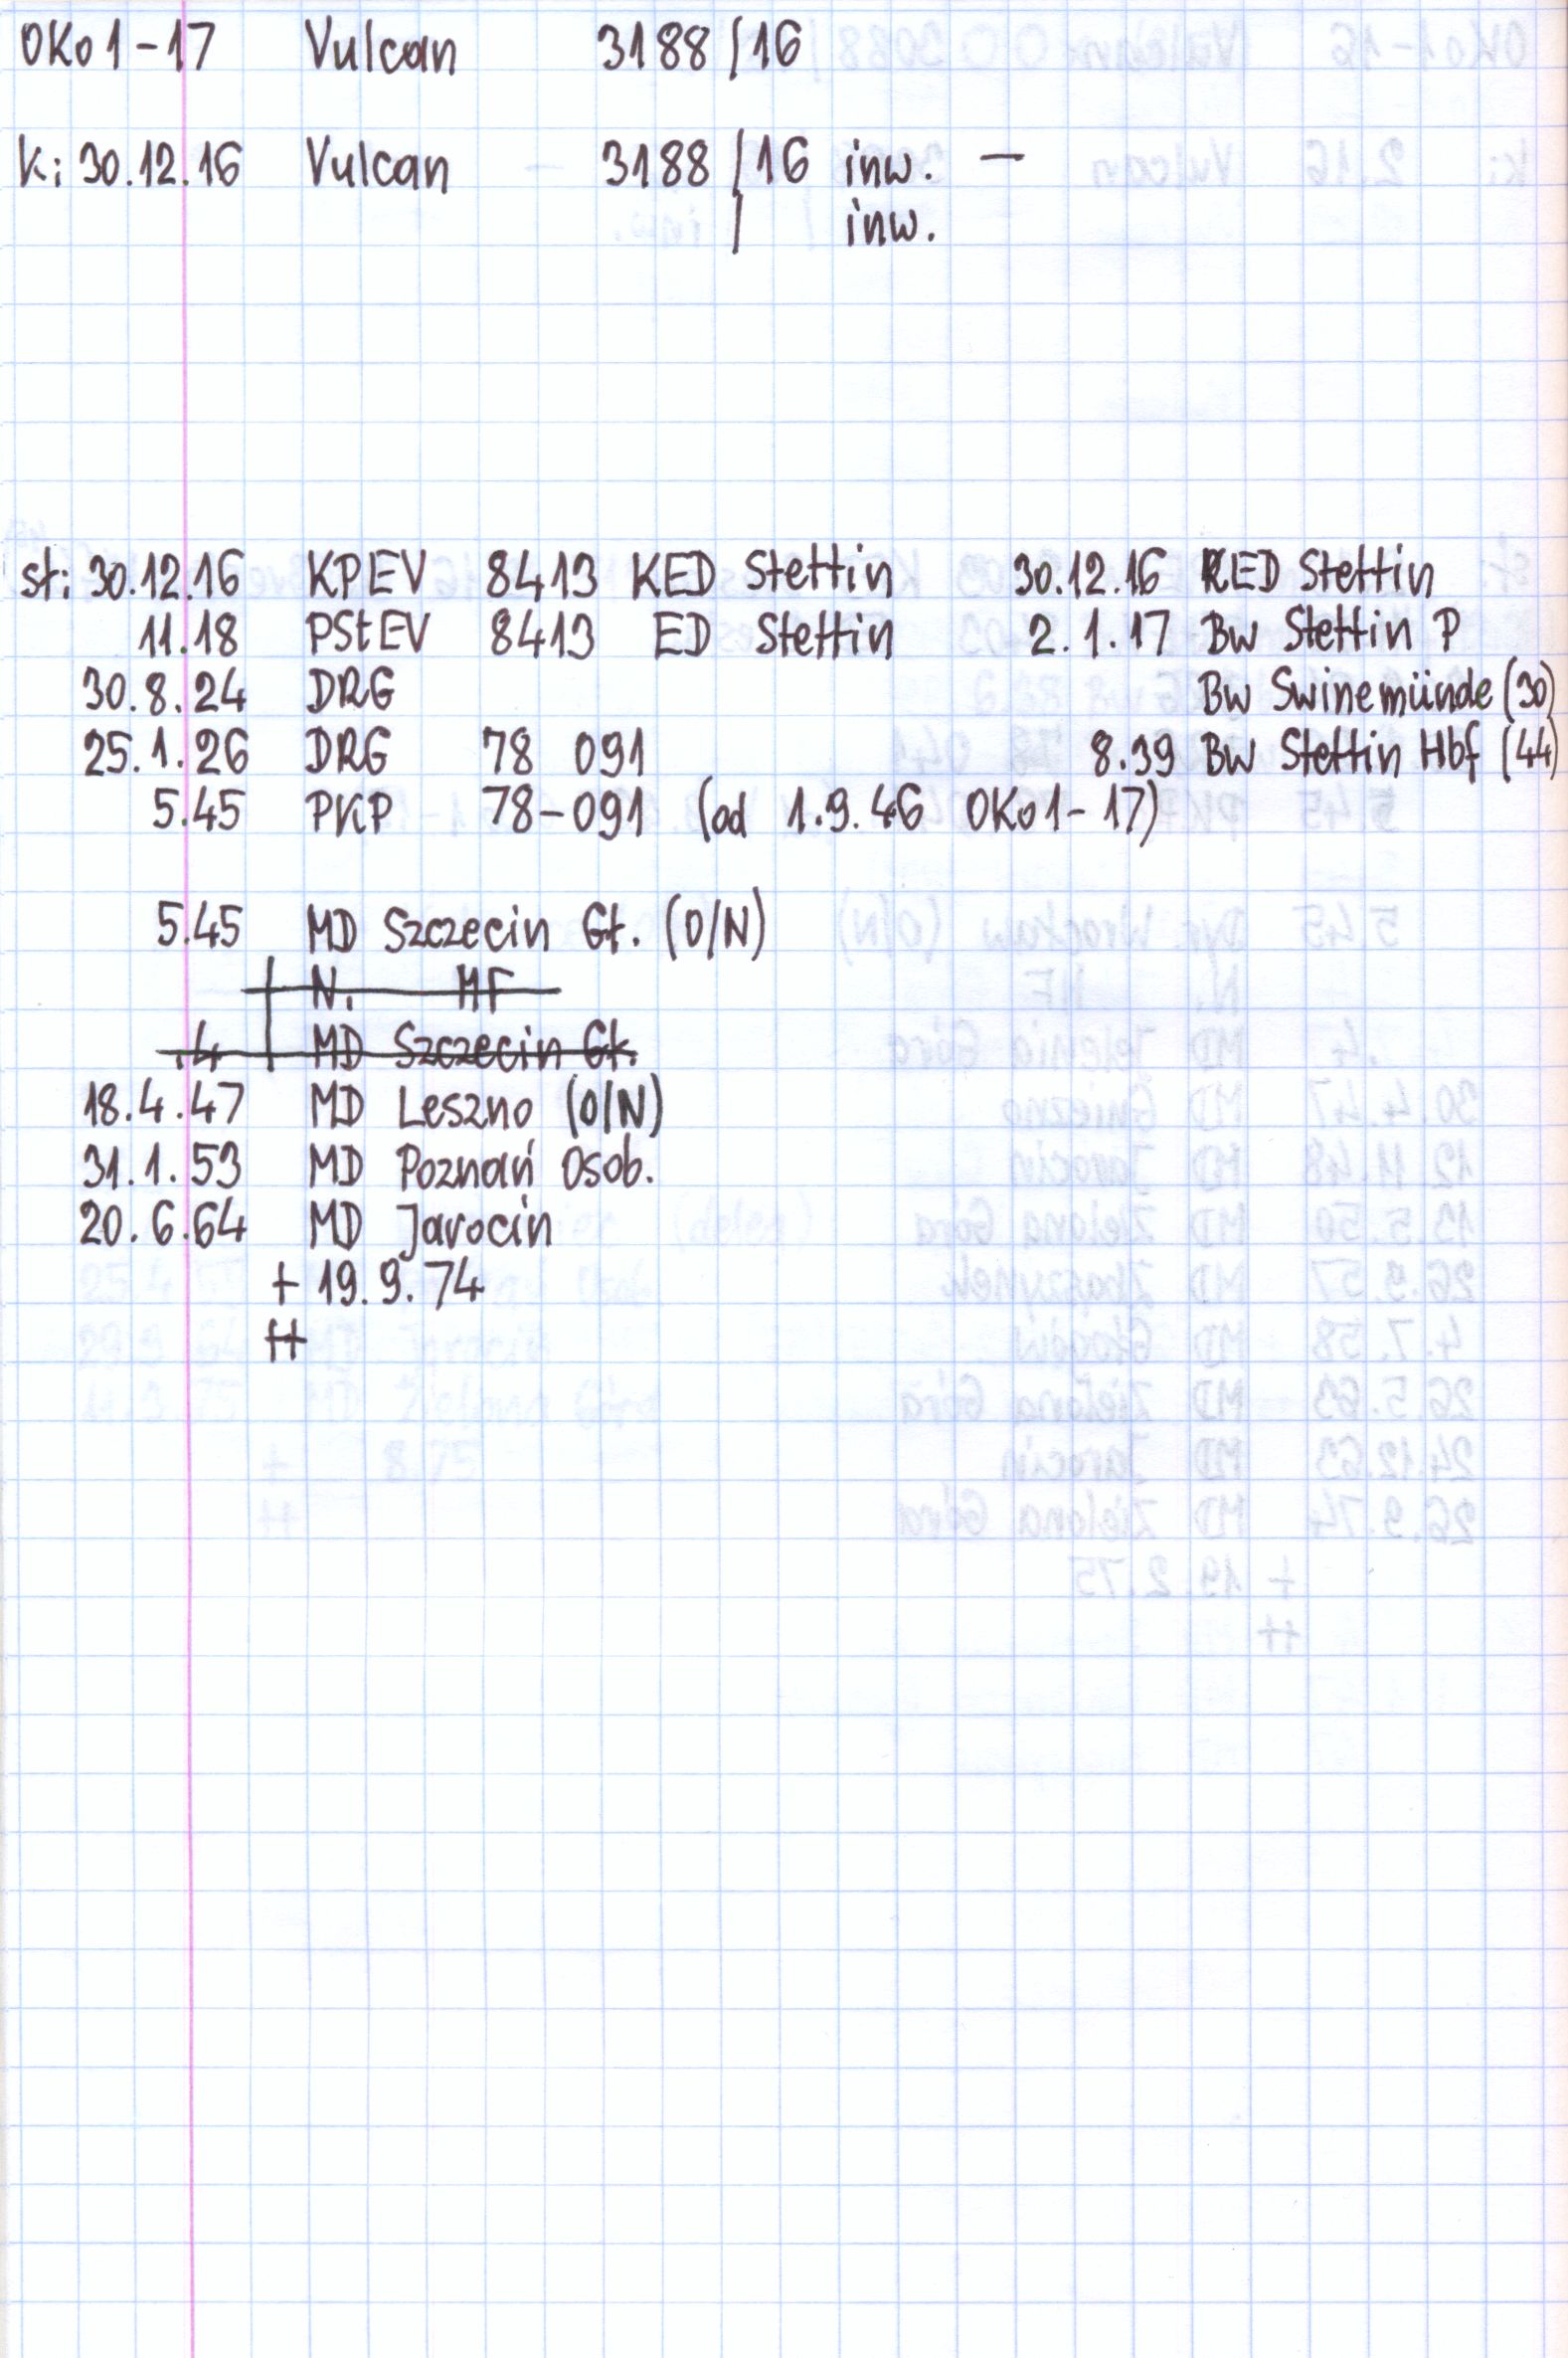 OKo1-17 Vulcan 3188/16
k: 30.12.16 Vulcan 3188/16 inw. —
/ inw.
st: 30.12.16 KPEV 8413 KED Stettin 30.12.16 KED Stettin
11.18 PStEV 8413 ED Stettin 2.1.17 Bw Stettin P
30.8.24 DRG Bw Swinemünde (30)
25.1.26 DRG 78 091 8.39 Bw Stettin Hbf (44)
5.45 PKP 78-091 (od 1.9.46 OKo1-17)
5.45 MD Szczecin Gł. (O/N)
N. MF
.4 MD Szczecin Gł.
18.4.47 MD Leszno (O/N)
31.1.53 MD Poznań Osob.
20.6.64 MD Jarocin
+ 19.9.74
++